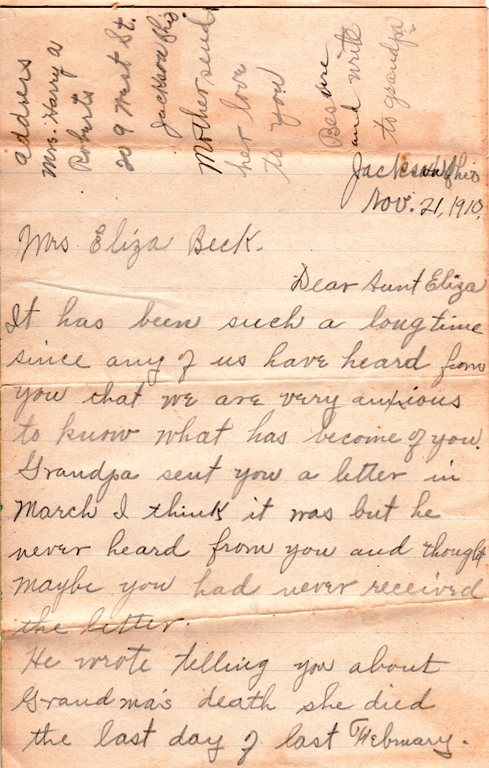 address
Mrs. Harry A
Roberts
209 West St.
Jackson Ohio
Mother sends
her love
to you
Be sure
and write
to grandpa
Jackson Ohio
Nov. 21, 1910.
Mrs Eliza Beck.
Dear Aunt Eliza
It has been such a long time
since any of us have heard from
you that we are very anxious
to know what has become of you.
Grandpa sent you a letter in
March I think it was but he
never heard from you and thought
maybe you had never received
the letter.
He wrote telling you about
Grandma's death she died
the last day of last February.